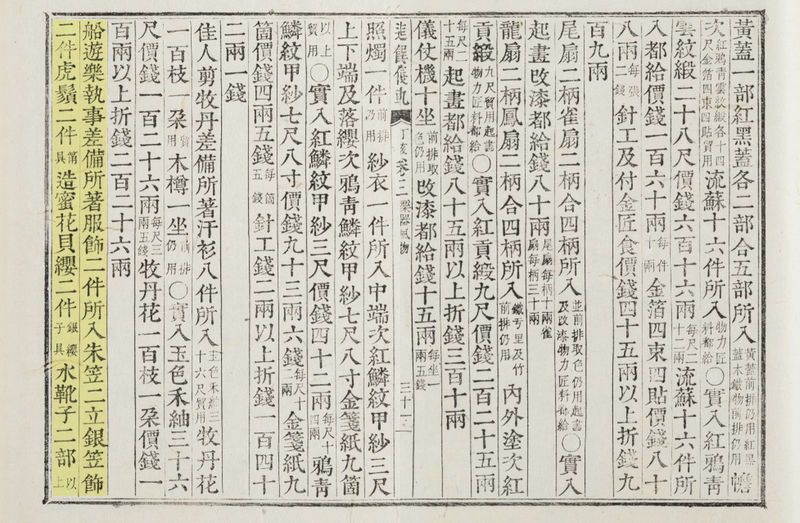 黃蓋一部紅黑蓋各二部合五部所入黃蓋前排仍用紅黑蓋木鐵物前排仍用幨
次紅鴉靑雲紋緞各十四尺金箔四束四貼貿用流蘇十六件所入物力匠料都給○實入紅鴉靑
雲紋緞二十八尺價錢六百十六兩每尺二十二兩流蘇十六件所
入都給價錢一百六十兩每件十兩金箔四束四貼價錢八十
八兩每張二錢針工及付金匠食價錢四十五兩以上折錢九
百九兩
尾扇二柄雀扇二柄合四柄所入並前排取色仍用起畫及改漆物力匠料都給○實入
起畫改漆都給錢八十兩尾扇每柄十兩雀扇每柄三十兩
龍扇二柄鳳扇二柄合四柄所入鐵亐里及竹前排仍用內外塗次紅
貢緞九尺貿用起畫物力匠料都給○實入紅貢緞九尺價錢二百二十五兩
每尺二十五兩起畫都給錢八十五兩以上折錢三百十兩
儀仗機十坐前排取色仍用改漆都給錢十五兩每坐一兩五錢
進饌儀軌 丁亥 卷三 樂器風物 三十一
照燭一件前排仍用紗衣一件所入中端次紅鱗紋甲紗三尺
上下端及落纓次鴉靑鱗紋甲紗七尺八寸金箋紙九箇
以上貿用○實入紅鱗紋甲紗三尺價錢四十二兩每尺十四兩鴉靑
鱗紋甲紗七尺八寸價錢九十三兩六錢每尺十二兩金箋紙九
箇價錢四兩五錢每箇五錢針工錢二兩以上折錢一百四十
二兩一錢
佳人剪牧丹差備所著汗衫八件所入玉色禾紬三十六尺貿用牧丹花
一百枝一朶貿用木樽一坐前排仍用○實入玉色禾紬三十六
尺價錢一百二十六兩每尺三兩五錢牧丹花一百枝一朶價錢一
百兩以上折錢二百二十六兩
船遊樂執事差備所著服飾二件所入朱笠二立銀笠飾
二件虎鬚二件笛具造蜜花貝纓二件銀纓子具水靴子二部以上